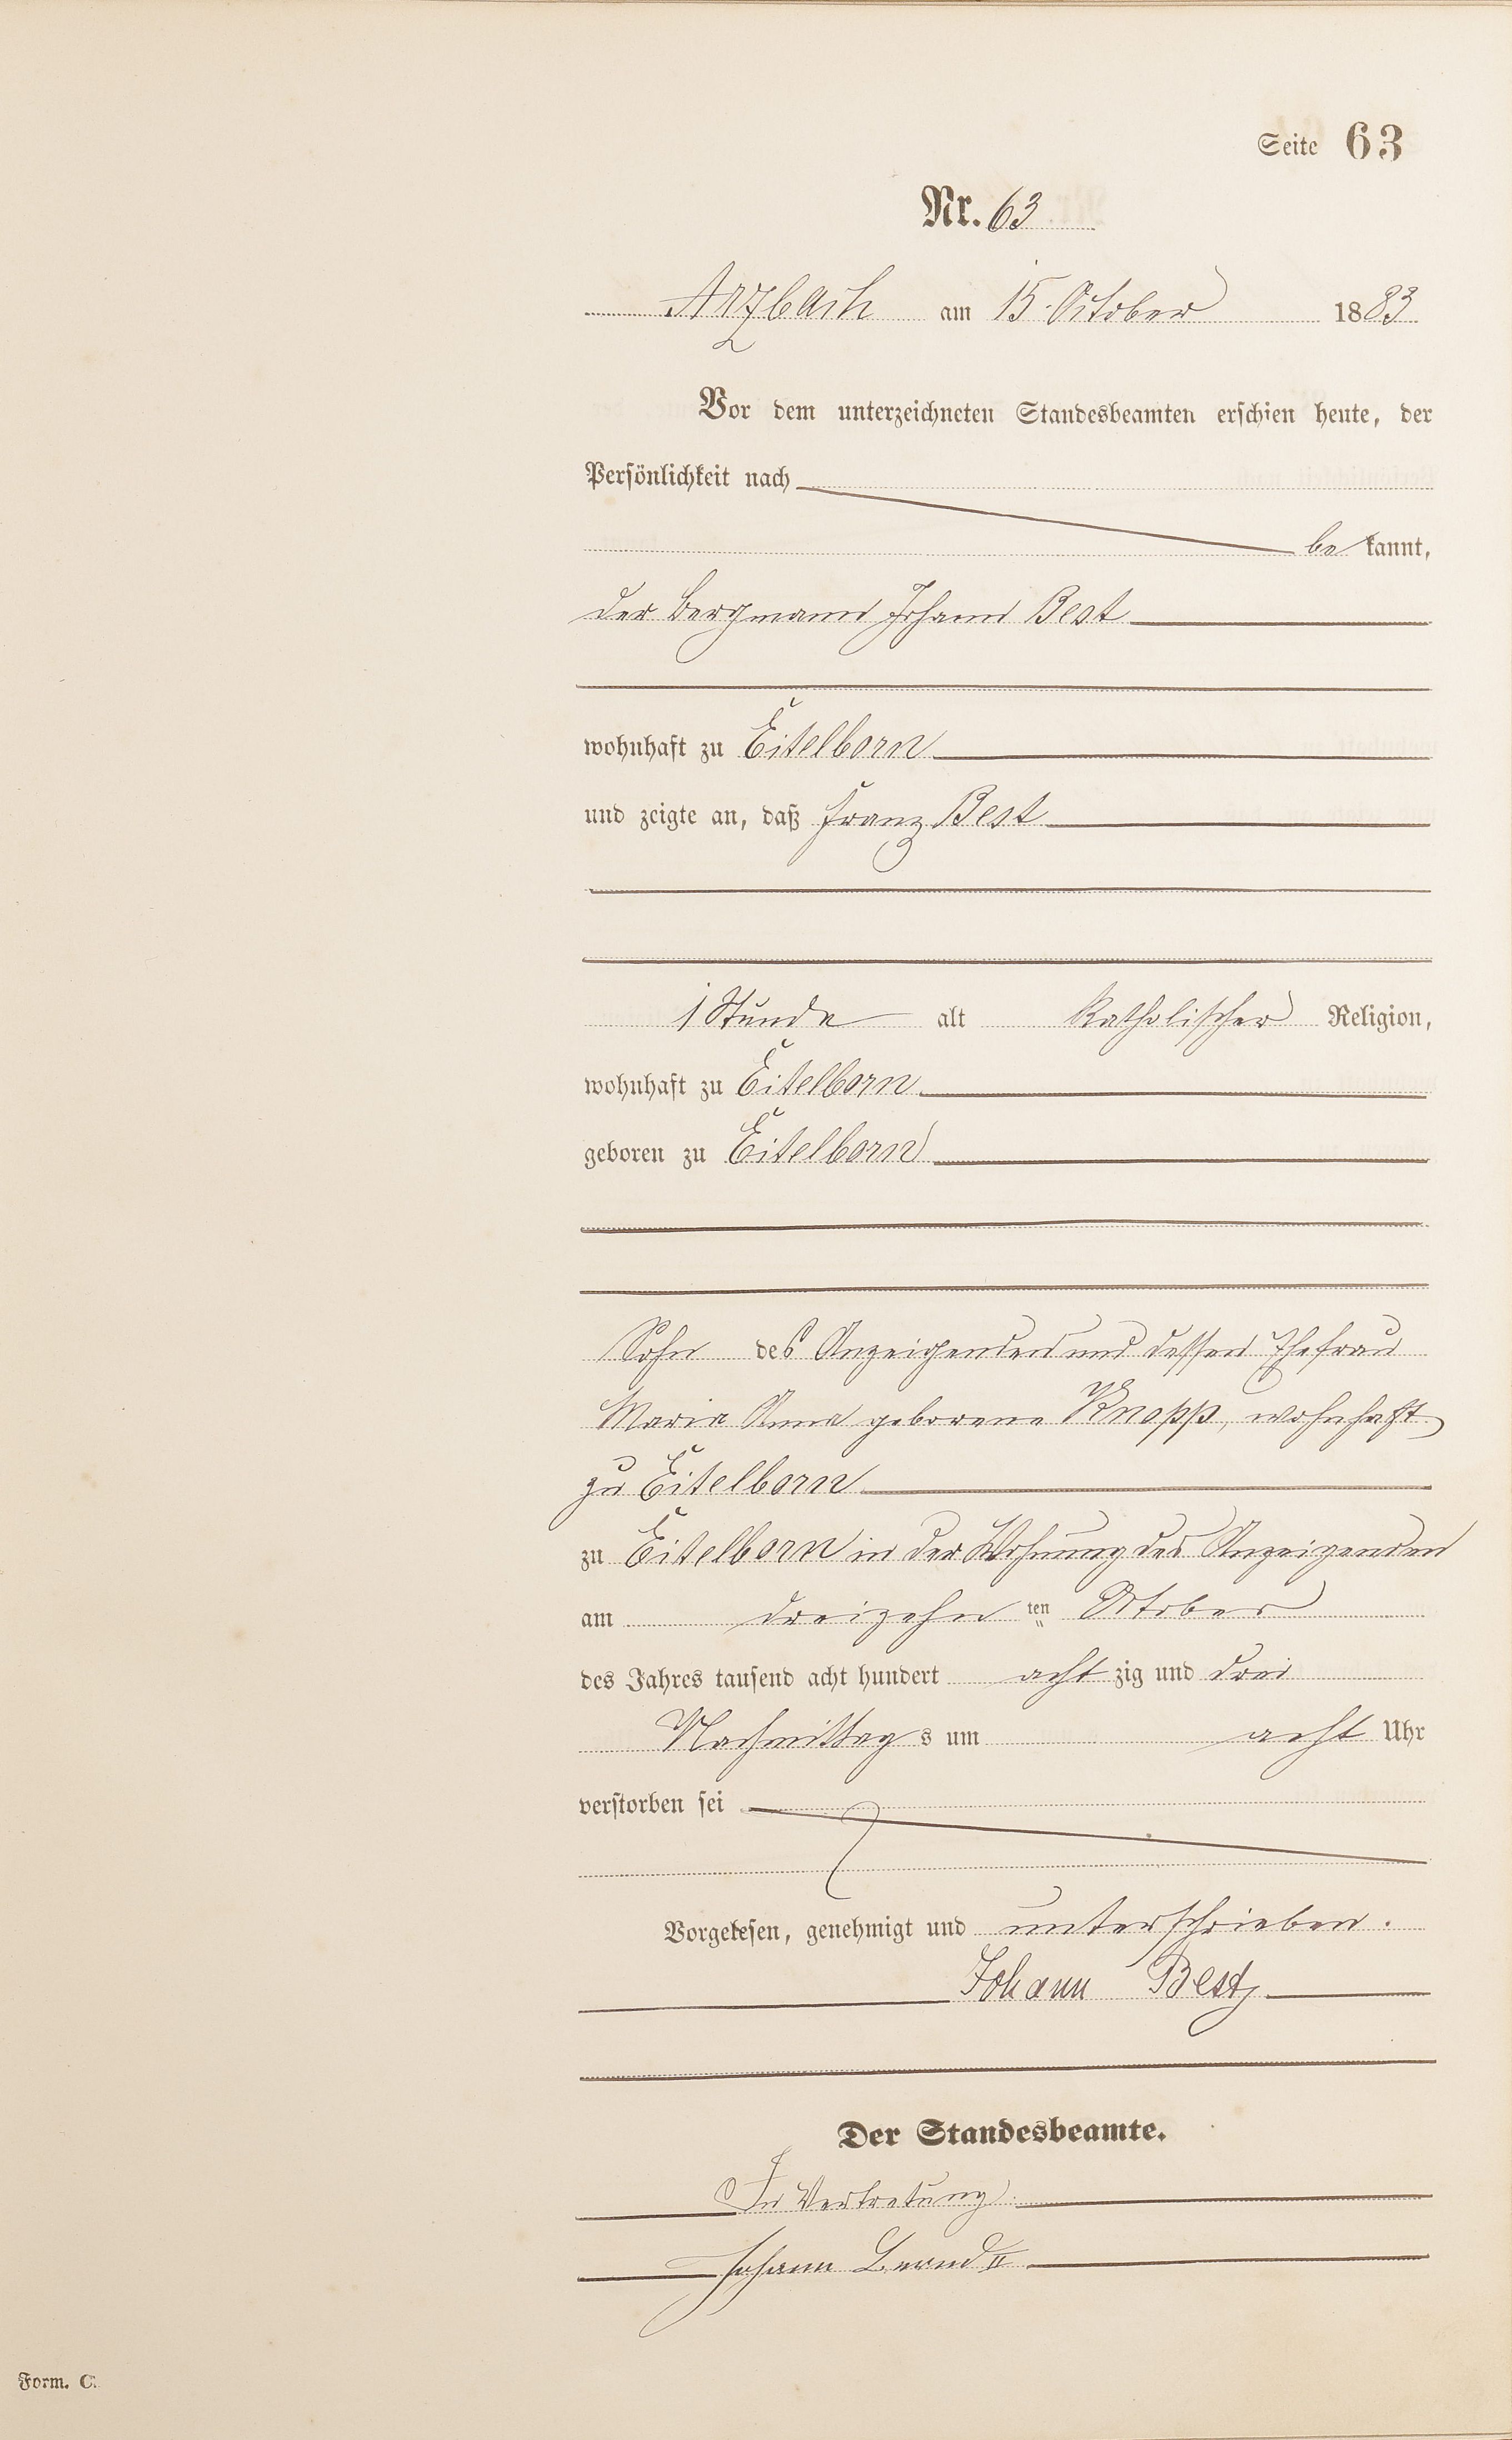 Seite 63
Nr. 63
Arzbach am 15. October 1883
Vor dem unterzeichneten Standesbeamten erschien heute, der
Persönlichkeit nach
be kannt,
der Bergmann Johann Best
wohnhaft zu Eitelborn
und zeigte an, daß Franz Best
1 Stunde alt katholischer Religion,
wohnhaft zu Eitelborn
geboren zu Eitelborn
Sohn des Anzeigenden und dessen Ehefrau
Maria Anna geborene Knopp, wohnhaft
zu Eitelborn
zu Eitelborn in der Wohnung des Anzeigenden
am dreizehn ten October
des Jahres tausend acht hundert acht zig und drei
Nachmittag s um acht Uhr
verstorben sei
Vorgelesen, genehmigt und unterschrieben.
Johann Best
Der Standesbeamte.
In Vertretung
Johann II
Form. C.